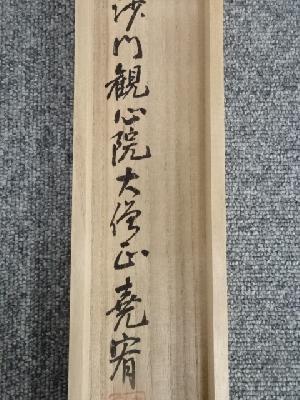 沙門観心院大僧正堯宥